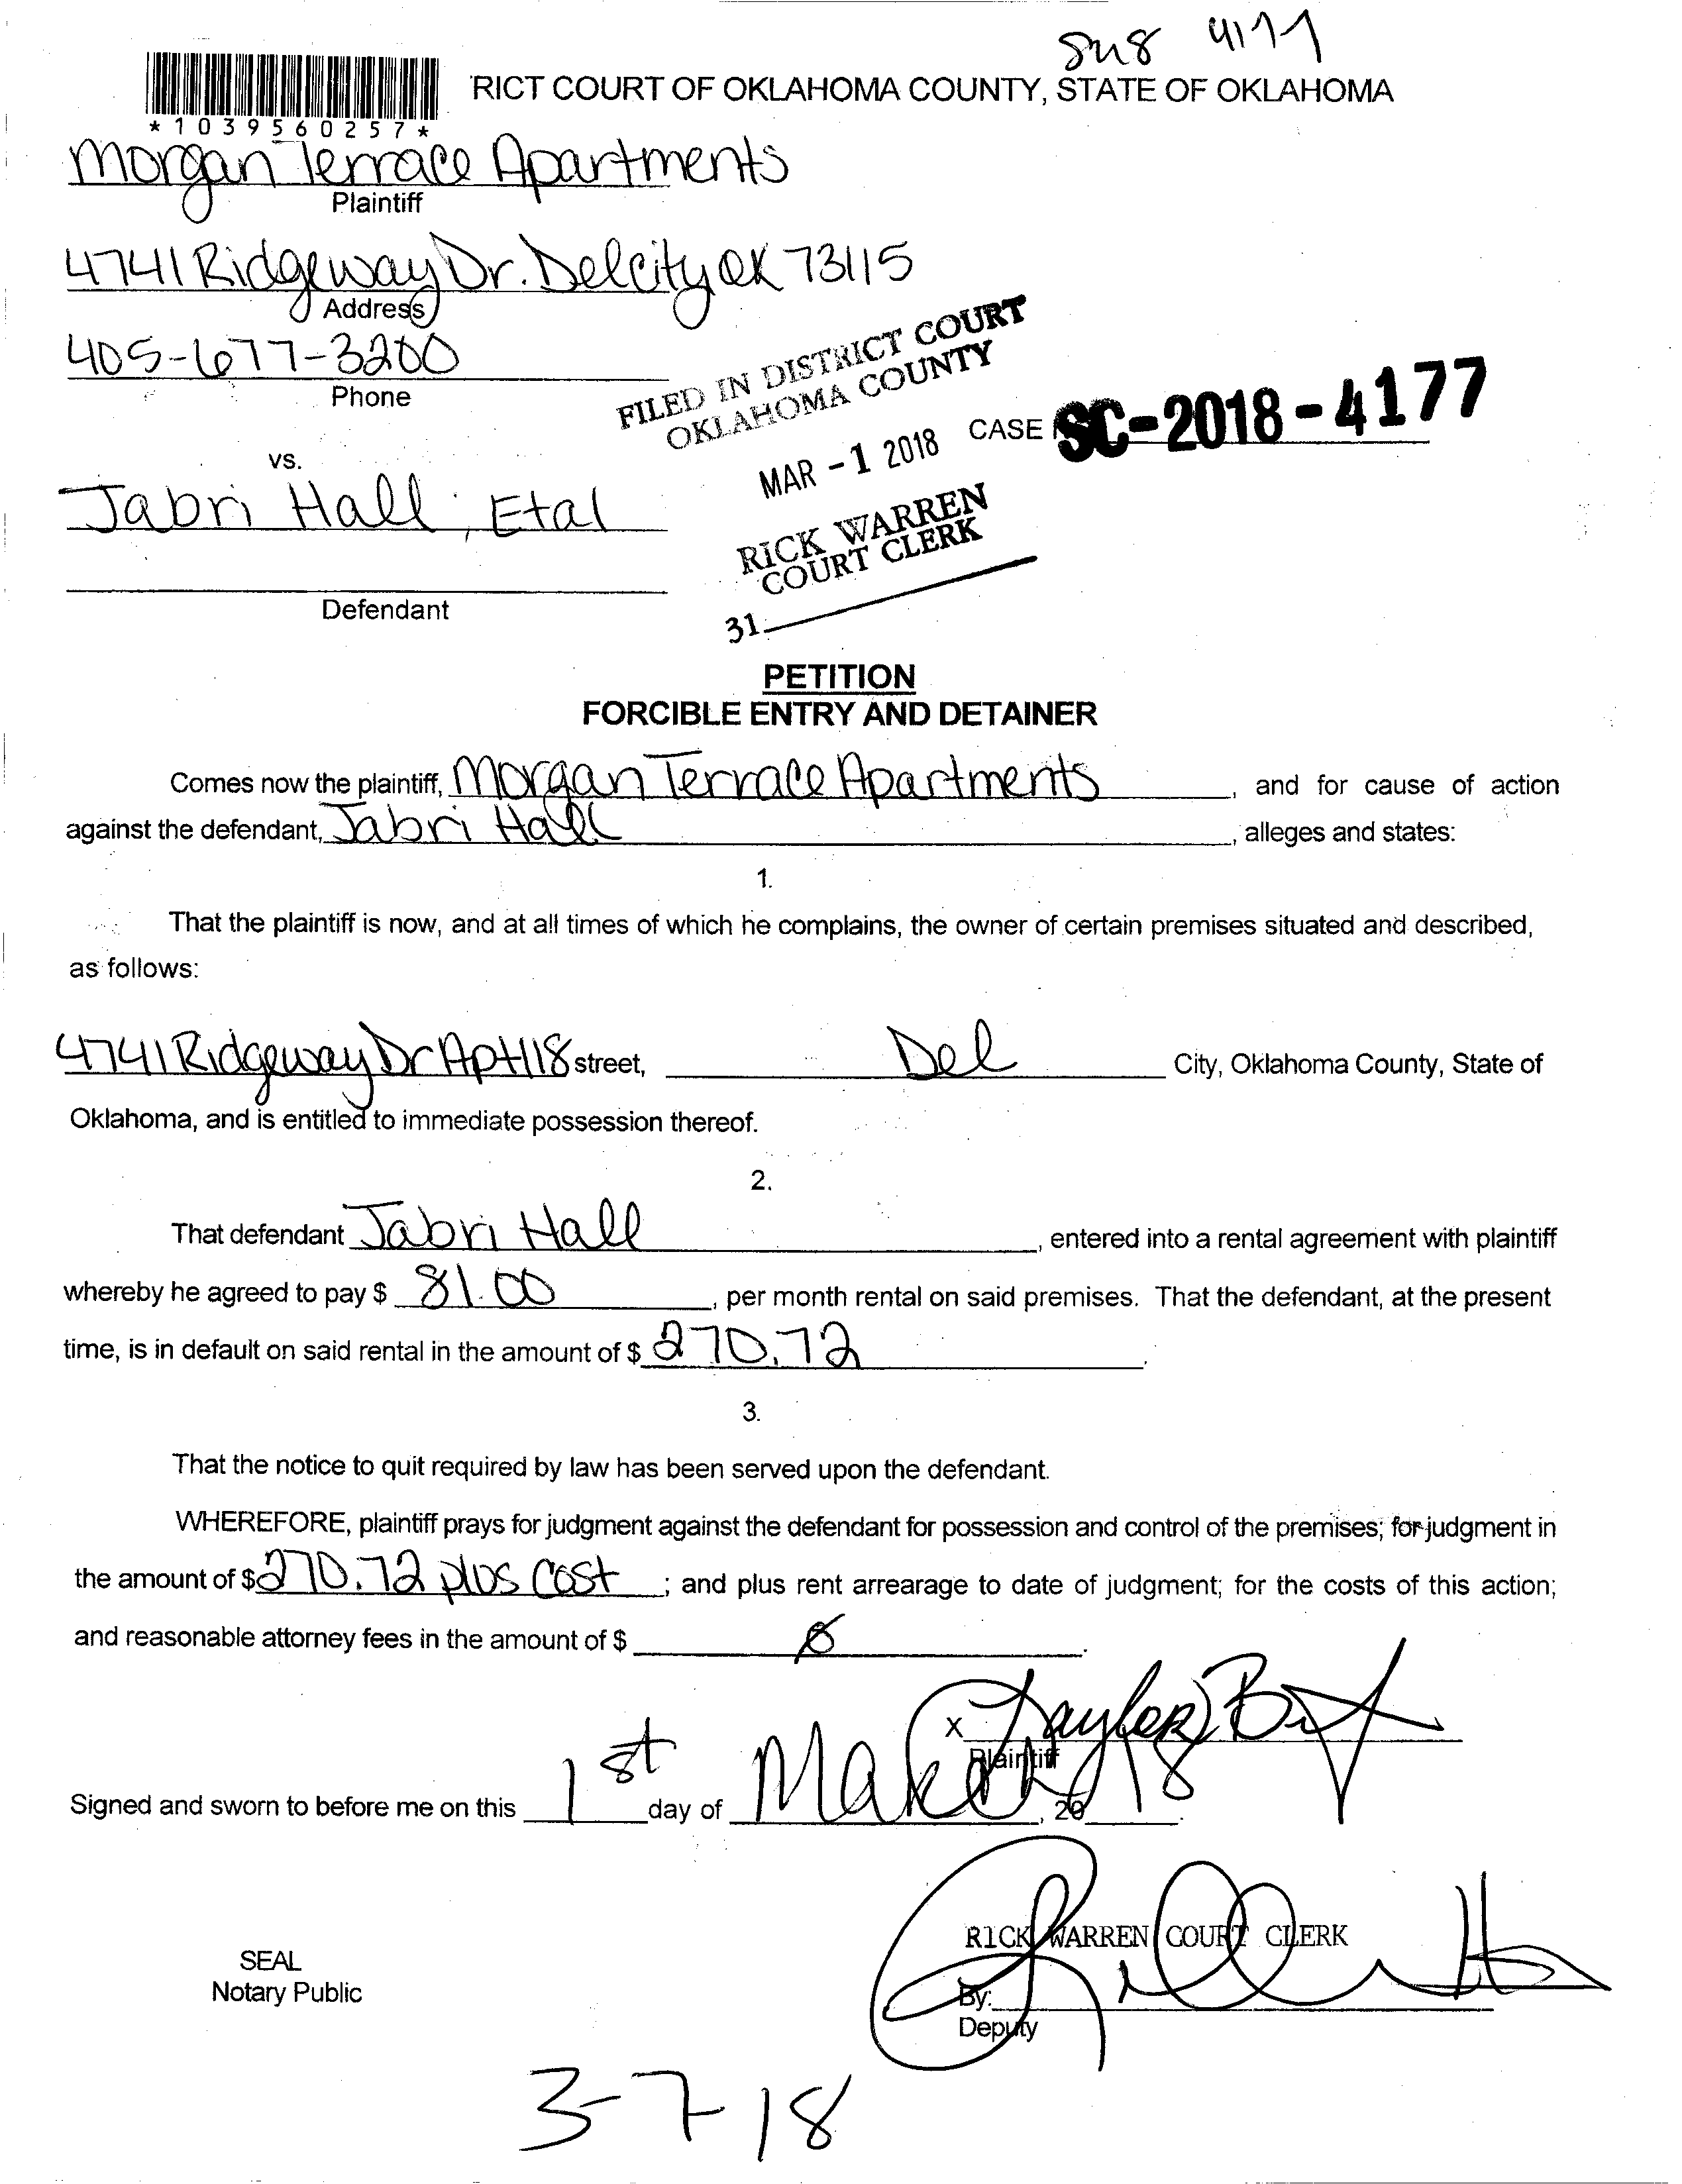 4177
RICT COURT OF OKLAHOMA COUNTY, STATE OF OKLAHOMA
*1039560257*
Morgan Terrace Apartments
Plaintiff
4741 Ridgeway Dr. Delcity OK 73115
Address
405-677-3200
Phone
FILED IN DISTRICT COURT
OKLAHOMA COUNTY
MAR -1 2018
CASE SC-2018-4177
vs.
Jabri Hall, Etal
RICK WARREN
COURT CLERK
31
Defendant
PETITION
FORCIBLE ENTRY AND DETAINER
Comes now the plaintiff, Morgan Terrace Apartments, and for cause of action
against the defendant, Jabri Hall, alleges and states:
1.
That the plaintiff is now, and at all times of which he complains, the owner of certain premises situated and described,
as follows:
4741 Ridgeway Dr Apt 118 street, Del City, Oklahoma County, State of
Oklahoma, and is entitled to immediate possession thereof.
2.
That defendant Jabri Hall, entered into a rental agreement with plaintiff
whereby he agreed to pay $ 81.00, per month rental on said premises. That the defendant, at the present
time, is in default on said rental in the amount of $ 270.72.
3.
That the notice to quit required by law has been served upon the defendant.
WHEREFORE, plaintiff prays for judgment against the defendant for possession and control of the premises; for judgment in
the amount of $270.72 plus cost; and plus rent arrearage to date of judgment; for the costs of this action;
and reasonable attorney fees in the amount of $
X
Plaintiff
Signed and sworn to before me on this 1st day of March, 2018.
RICK WARREN COURT CLERK
SEAL
Notary Public
By:
Deputy
3-7-18